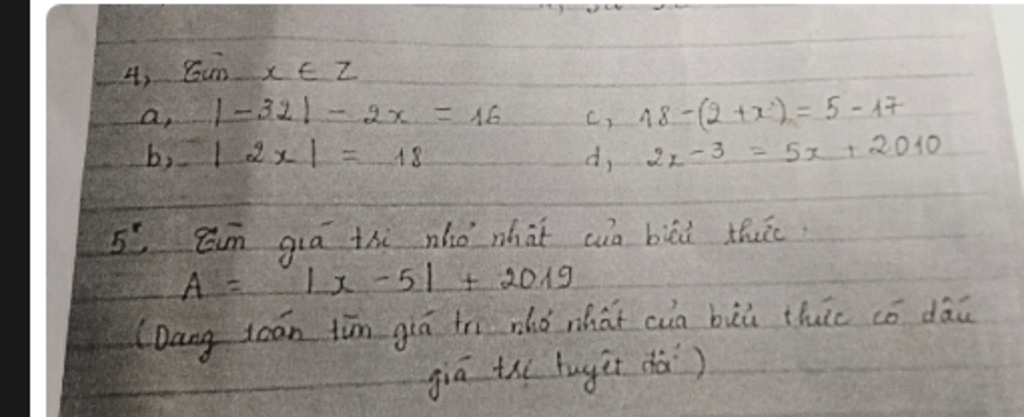 4, Tìm x ∈ Z
a, |-32| - 2x = 16 c, 18-(2+x) = 5 - 17
b, | 2x | = 18 d, 2x - 3 = 5x + 2010
5. Tìm giá trị nhỏ nhất của biểu thức.
A = |x - 5| + 2019
(Dạng toán tìm giá trị nhỏ nhất của biểu thức có dấu
giá trị tuyệt đối)